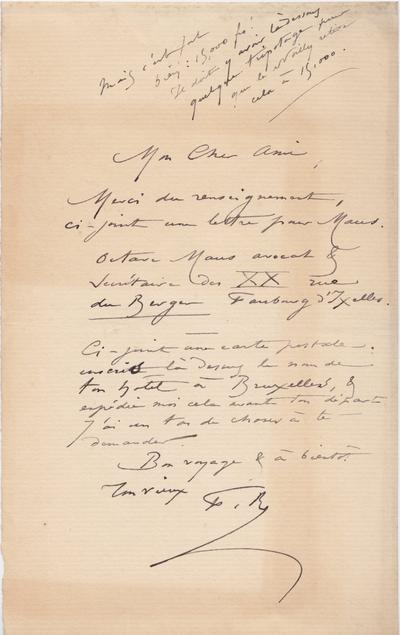 mais c'est fort
bien : 15,000 frs !
Je dois y avoir là-dessous
quelque tripotage pour
que le Wally
cela à 15,000.
Mon Cher Ami,
Merci du renseignement,
ci-joint une lettre pour Maus.
Octave Maus avocat &
Secrétaire des XX rue
du Berger Faubourg d'Ixelles.
Ci-joint une carte postale.
inscris là dessus le nom de
ton hotel à Bruxelles, &
expédie moi cela avant ton départ
J'ai un tas de choses à te
demander
Bon voyage & à bientôt.
Ton vieux F. R.